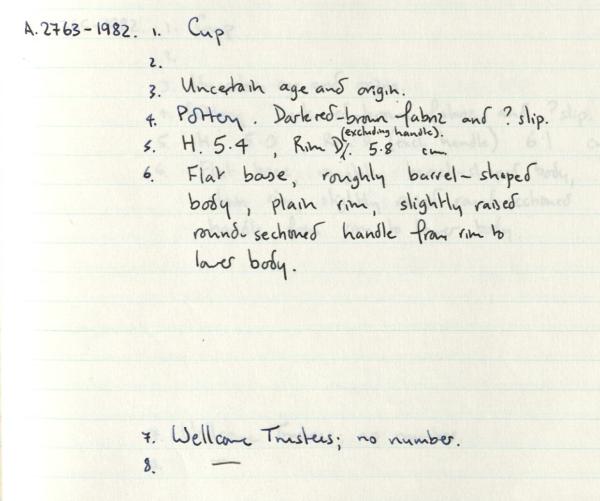 A.2763-1982. 1. Cup
2.
3. Uncertain age and origin.
4. Pottery. Dark red-brown fabric and ? slip.
(excluding handle).
5. H. 5.4, Rim D. 5.8 cm
6. Flat base, roughly barrel-shaped
body, plain rim, slightly raised
round-sectioned handle from rim to
lower body.
7. Wellcome Trustees; no number.
8. —